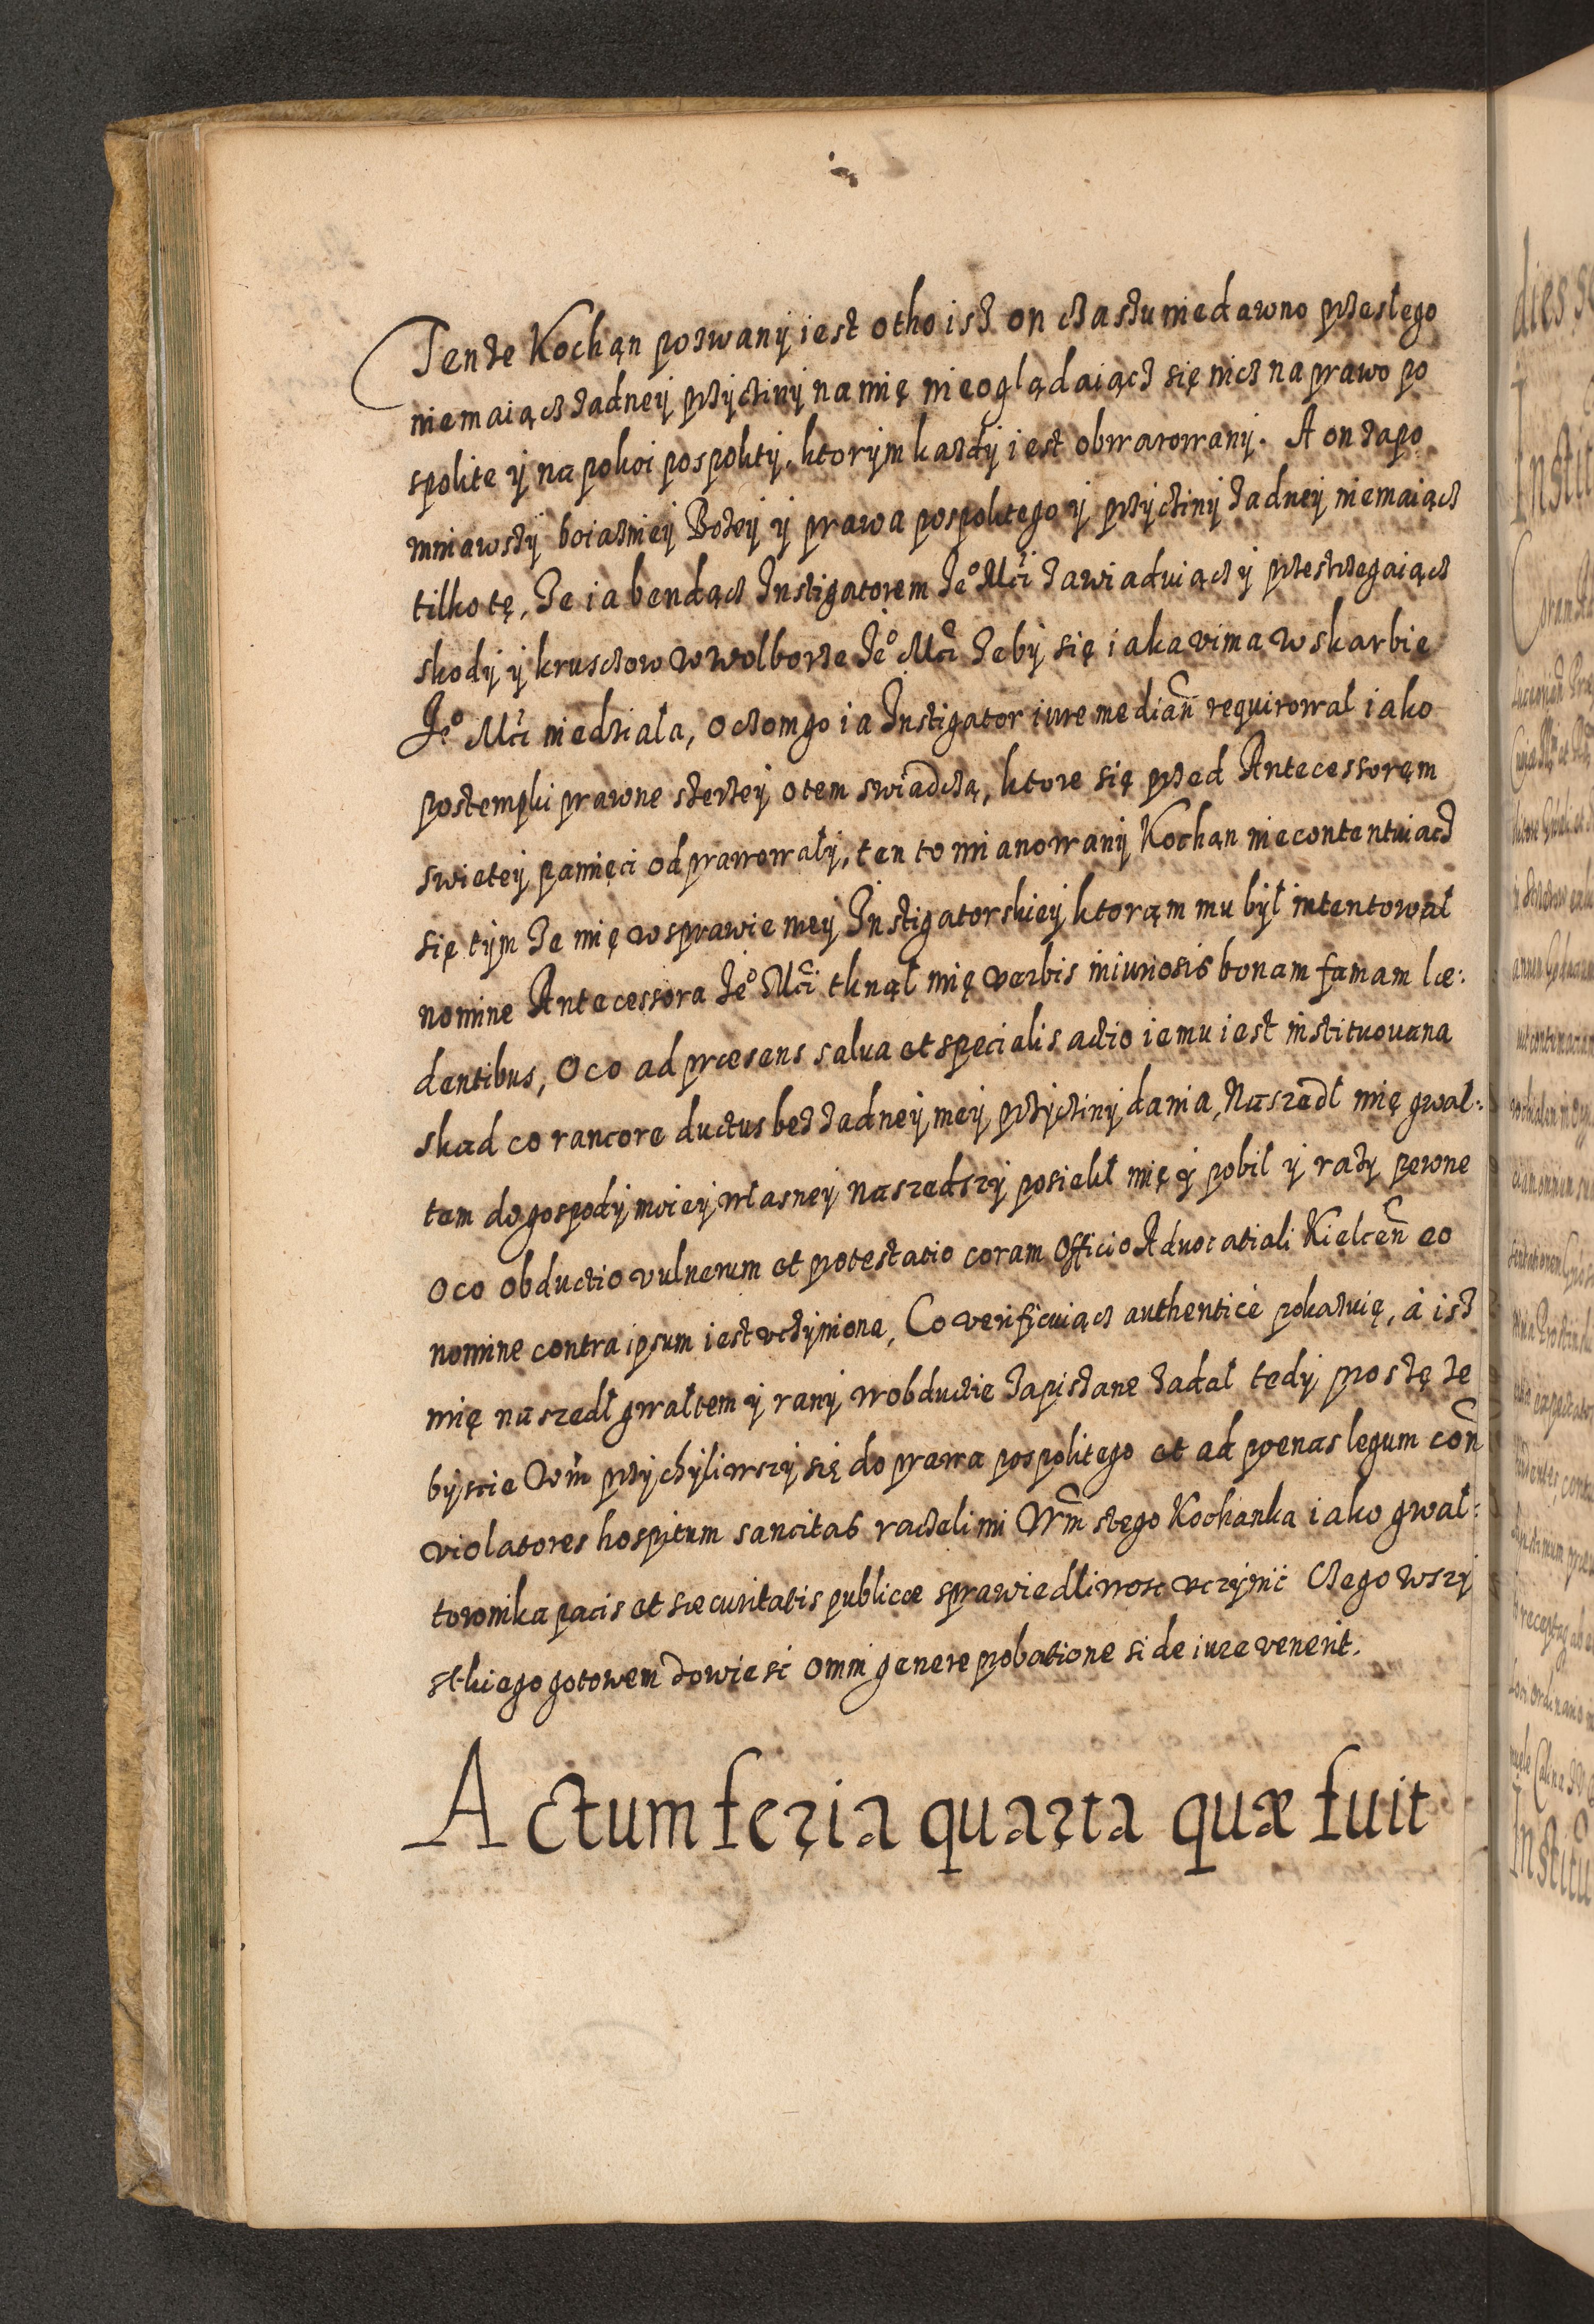 Tenze Kochąn pozwany iest otho isz on czaszu niedawno przeszłego
niemaiącz zadney przycziny na mię nieoglądaiącz się nicz na prawo po
spolite y na pokoi pospolity, ktorym kazdy iest obwarowany. A on zapo
mniawszy boiazniey Bozey y prawa pospolitego y przycziny zadney niemaiącz
tilko tę, ze ia bendącz Instigatorem Jeº Mći zawiaduiącz y przestrzegaiącz
skody y kruszczow w wolborze Jeº Mći zeby się iaka vima w skarbie
Jeº Mći niedziała, o czom go ia Instigator iure median̄ requirował iako
postempki prawne szerzey o tem swiadczą, ktore się przed Antecessoręm
swietey pamięci odprawowały, ten to mianowany Kochąn niecontentuiącz
się tym ze mię w sprawie mey Instigatorskiey ktorąm mu był intentował
nomine Antecessora Jeº Mći tknął mię verbis iniuriosis bonam famam læ:
dentibus, O co ad præsens salua et specialis actio iemu iest instituowana
skad co rancore ductus bez zadney mey przycziny dania, Naszedł mię gwał:
tem do gospody moiey własney naszedszy posiekł mię y pobił y razy pewne
O co obductio vulnerum et protestatio coram Officio Aduocatiali Kielcen̄ eo
nomine contra ipsum iest vczyniona, Co verificuiącz authenticè pokazuię, à isz
mię naszedł gwałtem y rany w obductie zapiszane zadał tedy proszę ze
byscie Wm̄ przychyliwszy się do prawa pospolitego et ad poenas legum con̄
violatores hospitum sancitas raczeli mi Wm̄ stego Kochanka iako gwał:
townika pacis et securitatis publicæ sprawiedliwosc vczynić Czego wszy
stkiego gotowem dowiesć omni genere probatione si de iure venerit.
Actum feria quarta quæ fuit